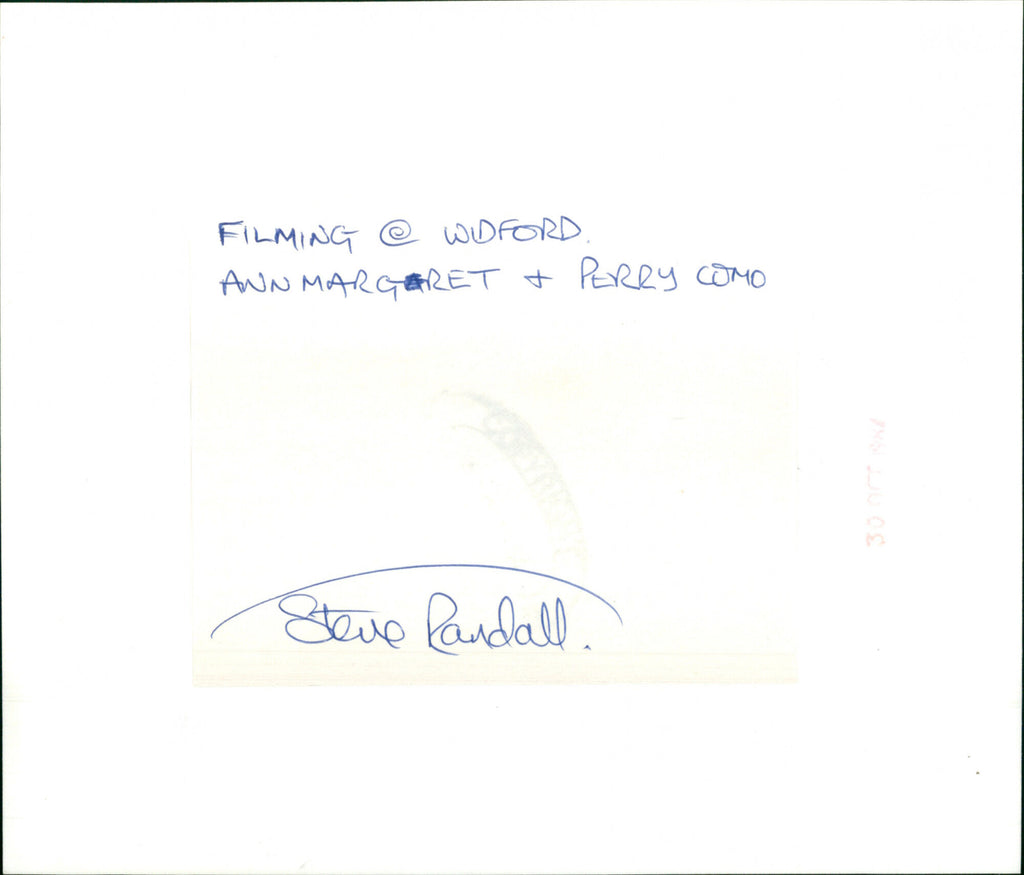 FILMING @ WIDFORD.
ANN MARGARET + PERRY COMO
Steve Randall.
30 OCT